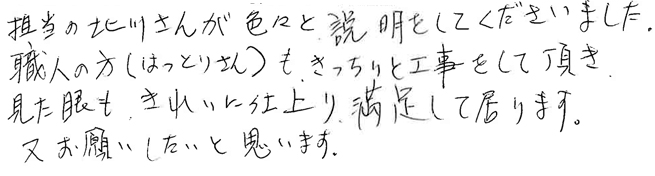 担当の北川さんが色々と説明をしてくださいました。
職人の方(はっとりさん)も、きっちりと工事をして頂き、
見た眼も、きれいに仕上り、満足して居ります。
又お願いしたいと思います。